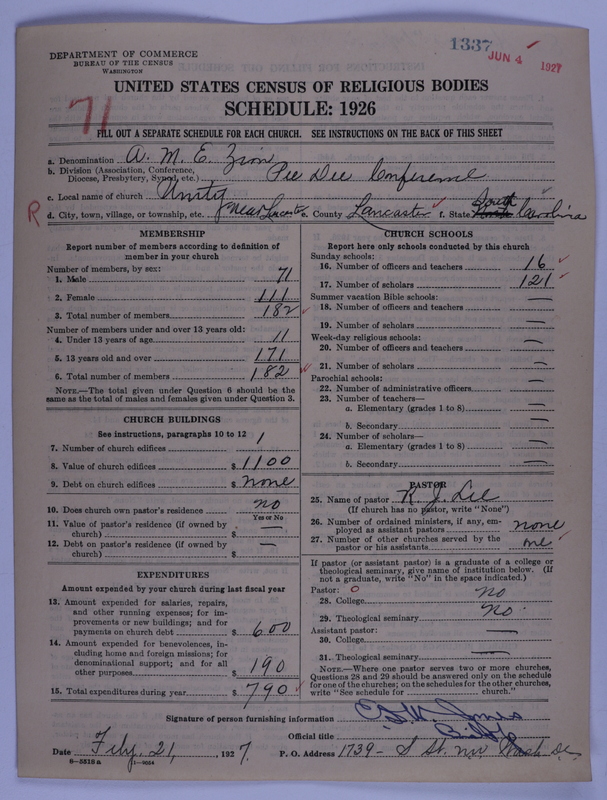 1337
JUN 4 1927
DEPARTMENT OF COMMERCE
BUREAU OF THE CENSUS
WASHINGTON
UNITED STATES CENSUS OF RELIGIOUS BODIES
SCHEDULE: 1926
71
FILL OUT A SEPARATE SCHEDULE FOR EACH CHURCH. SEE INSTRUCTIONS ON THE BACK OF THIS SHEET
a. Denomination A. M. E. Zion
b. Division (Association, Conference, Diocese, Presbytery, Synod, etc.) Pee Dee Conference
c. Local name of church Unity
R d. City, town, village, or township, etc. near Lancaster e. County Lancaster f. State South Carolina
MEMBERSHIP
Report number of members according to definition of
member in your church
Number of members, by sex:
1. Male 71
2. Female 111
3. Total number of members 182
Number of members under and over 13 years old:
4. Under 13 years of age 11
5. 13 years old and over 171
6. Total number of members 182
NOTE.—The total given under Question 6 should be the
same as the total of males and females given under Question 3.
CHURCH BUILDINGS
See instructions, paragraphs 10 to 12
7. Number of church edifices 1
8. Value of church edifices $ 1100
9. Debt on church edifices $ none
10. Does church own pastor's residence no
Yes or No
11. Value of pastor's residence (if owned by
church) $ —
12. Debt on pastor's residence (if owned by
church) $ —
EXPENDITURES
Amount expended by your church during last fiscal year
13. Amount expended for salaries, repairs,
and other running expenses; for im-
provements or new buildings; and for
payments on church debt $ 600
14. Amount expended for benevolences, in-
cluding home and foreign missions; for
denominational support; and for all
other purposes $ 190
15. Total expenditures during year $ 790
CHURCH SCHOOLS
Report here only schools conducted by this church
Sunday schools:
16. Number of officers and teachers 16
17. Number of scholars 121
Summer vacation Bible schools:
18. Number of officers and teachers —
19. Number of scholars —
Week-day religious schools:
20. Number of officers and teachers —
21. Number of scholars —
Parochial schools:
22. Number of administrative officers —
23. Number of teachers—
a. Elementary (grades 1 to 8) —
b. Secondary —
24. Number of scholars—
a. Elementary (grades 1 to 8) —
b. Secondary —
PASTOR
25. Name of pastor R. J. Lee
(If church has no pastor, write "None")
26. Number of ordained ministers, if any, em-
ployed as assistant pastors none
27. Number of other churches served by the
pastor or his assistants one
If pastor (or assistant pastor) is a graduate of a college or
theological seminary, give name of institution below. (If
not a graduate, write "No" in the space indicated.)
Pastor: 0
28. College no
29. Theological seminary no.
Assistant pastor:
30. College —
31. Theological seminary —
NOTE.—Where one pastor serves two or more churches,
Questions 28 and 29 should be answered only on the schedule
for one of the churches; on the schedules for the other churches,
write "See schedule for church."
Signature of person furnishing information E. D. W. Jones
Official title Bishop
Date Feby. 21, 1927. P. O. Address 1739 - S St. NW Wash DC
8-5518a 1-9054